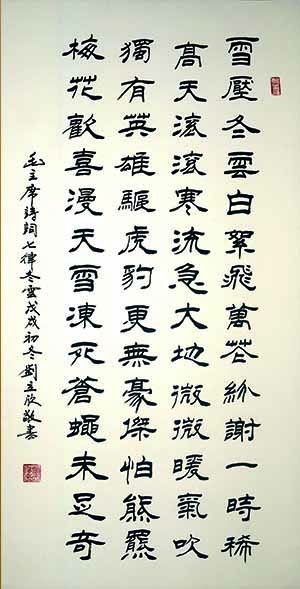 雪壓冬雲白絮飛萬花紛謝一時稀
高天滾滾寒流急大地微微暖氣吹
獨有英雄驅虎豹更無豪傑怕熊羆
梅花歡喜漫天雪凍死蒼蠅未足奇
毛主席詩詞七律冬雲戊戌初冬劉立欣敬書